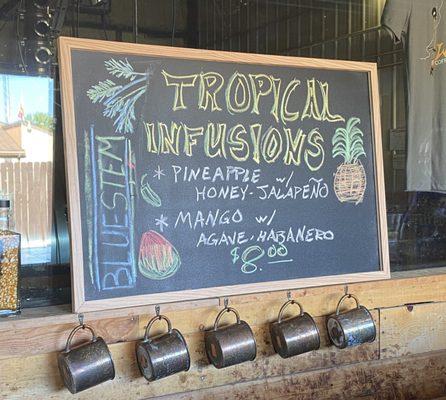 TROPICAL
INFUSIONS
BLUESTEM
* PINEAPPLE W/
HONEY-JALAPEÑO
* MANGO W/
AGAVE-HABANERO
$8.00